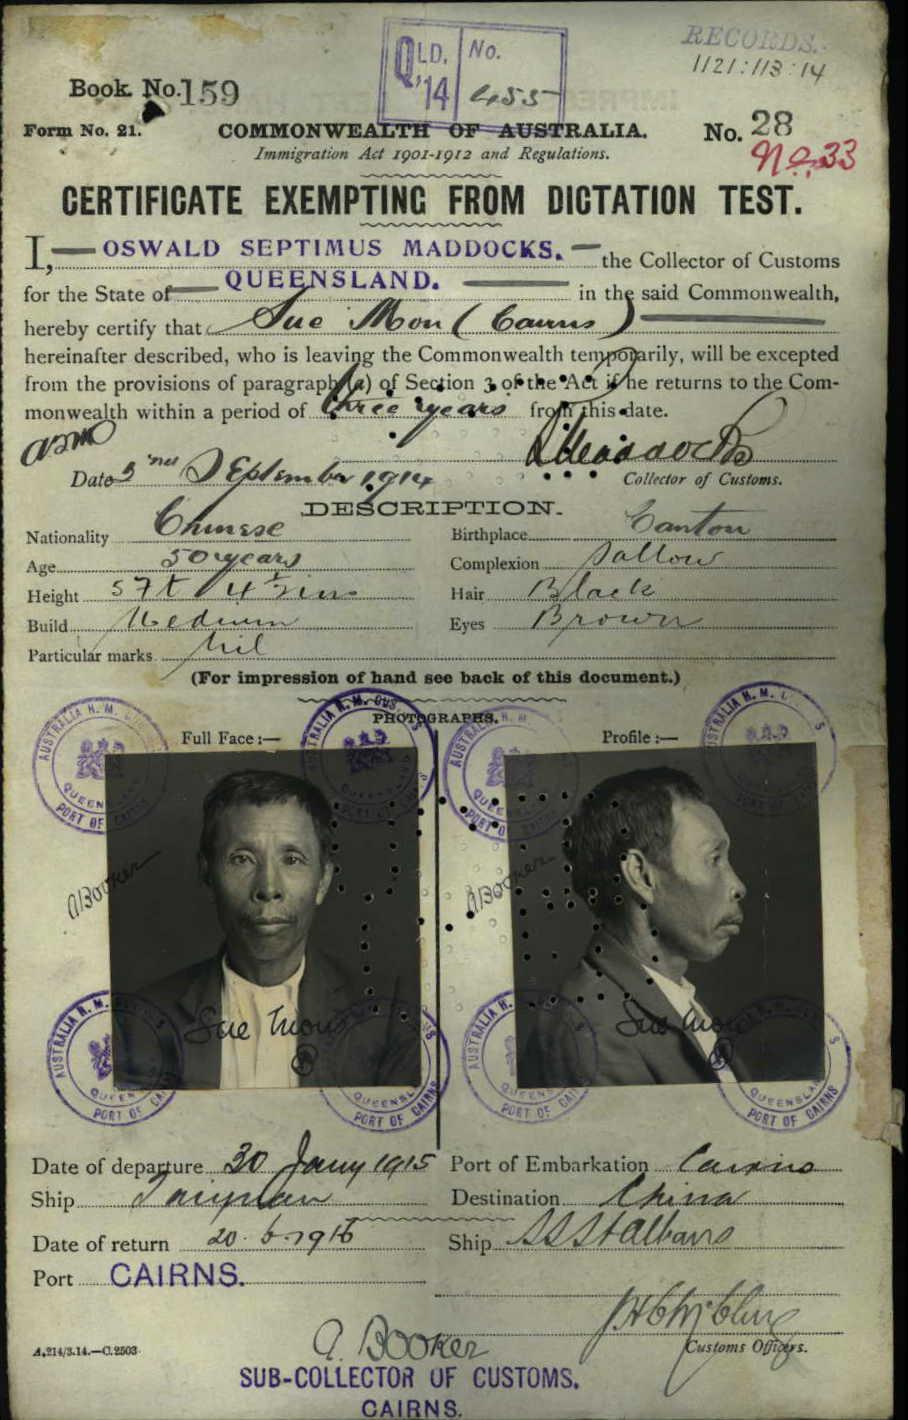 RECORDS.
1121:113:14
QLD. No.
'14 455
Book No. 159
Form No. 21.
COMMONWEALTH OF AUSTRALIA.
No. 28
No. 33
Immigration Act 1901-1912 and Regulations.
CERTIFICATE EXEMPTING FROM DICTATION TEST.
I, OSWALD SEPTIMUS MADDOCKS. the Collector of Customs
for the State of QUEENSLAND. in the said Commonwealth,
hereby certify that Sue Mon (Cairns)
hereinafter described, who is leaving the Commonwealth temporarily, will be excepted
from the provisions of paragraph (a) of Section 3 of the Act if he returns to the Com-
monwealth within a period of three years from this date.
OSMaddocks
Date 3rd September 1914 Collector of Customs.
DESCRIPTION.
Nationality Chinese Birthplace Canton
Age 50 years Complexion Sallow
Height 5 ft 4½ ins Hair Black
Build Medium Eyes Brown
Particular marks nil
(For impression of hand see back of this document.)
PHOTOGRAPHS.
Full Face:— Profile:—
AUSTRALIA H. M. CUSTOMS
QUEENSLAND
PORT OF CAIRNS
A Booker
A Booker
Sue Mon
Sue Mon
Date of departure 30 Jany 1915 Port of Embarkation Cairns
Ship Taiyuan Destination China
Date of return 20.6.1916 Ship SS St Albans
Port CAIRNS.
A. Booker
Customs Officers.
A.214/3.14.—C.2503.
SUB-COLLECTOR OF CUSTOMS.
CAIRNS.